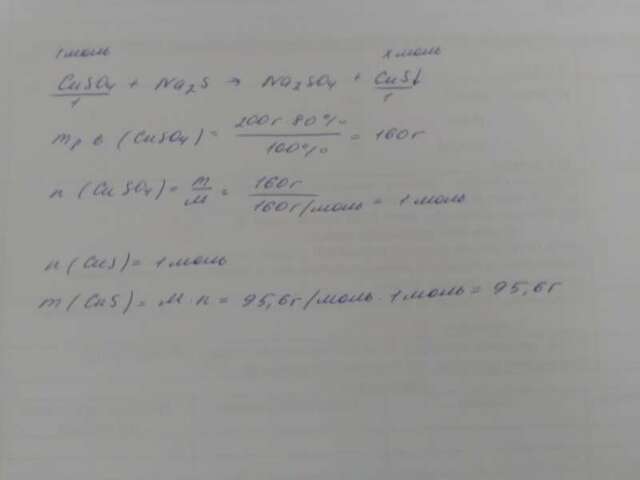 1 моль x моль
CuSO4 + Na2S → Na2SO4 + CuS↓
1 1
mр в (CuSO4) = 200г·80% / 100% = 160г
n (CuSO4) = m / M = 160г / 160г/моль = 1 моль
n (CuS) = 1 моль
m (CuS) = M·n = 95,6г/моль · 1 моль = 95,6г